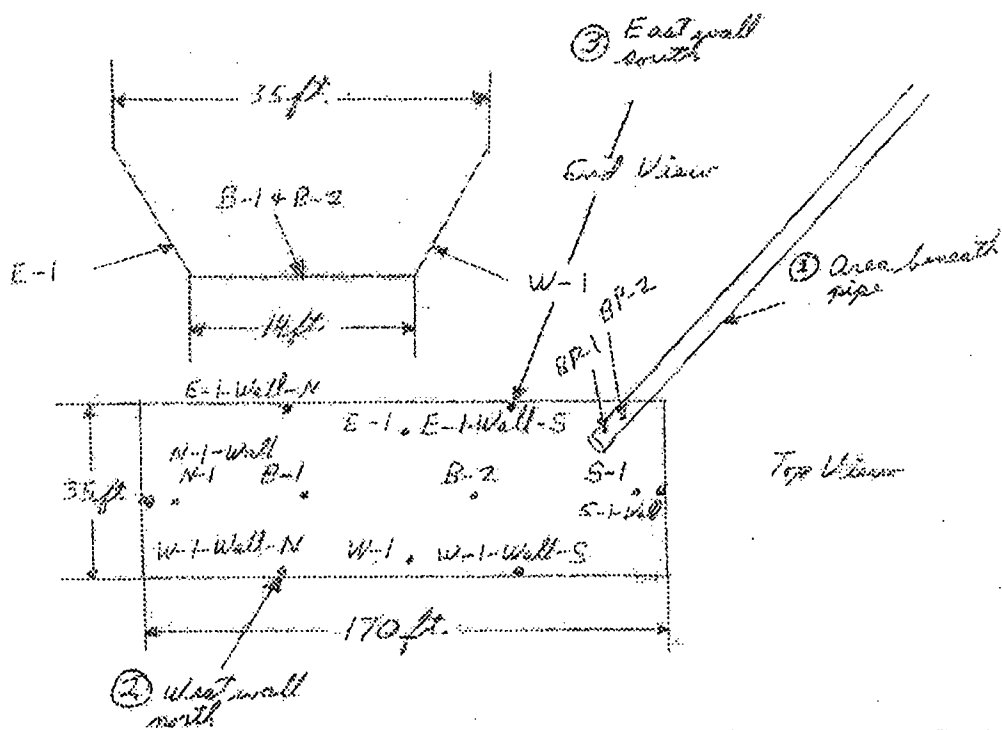 ③ East wall
south
35 ft.
End View
B-1 + B-2
E-1
W-1
① Area beneath
pipe
14 ft.
BP-1
BP-2
E-1-Wall-N
E-1
E-1-Wall-S
N-1-Wall
N-1
B-1
B-2
S-1
Top View
35 ft
S-1-Wall
W-1-Wall-N
W-1
W-1-Wall-S
170 ft.
② West wall
north